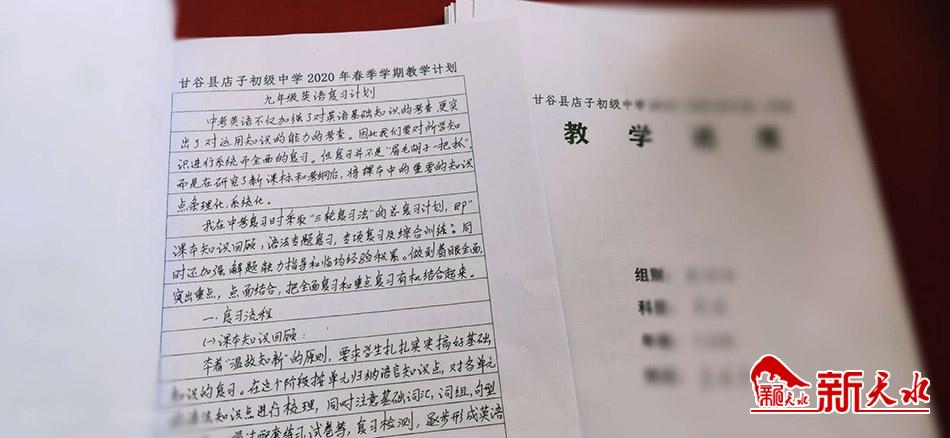 甘谷县店子初级中学2020年春季学期教学计划
九年级英语复习计划
中考英语不仅加强了对英语基础知识的考查,更突
出了对运用知识的能力的考查。因此我们要对所学知
识进行系统而全面的复习。但复习并不是“眉毛胡子一把抓”,
而是在研究了新课标和考纲后,将课本中的重要的知识
点条理化,系统化。
我在中考复习时采取“三轮复习法”的总复习计划,即“
课本知识回顾,语法专题复习,专项复习及综合训练”。同
时还加强解题能力指导和临场经验积累。做到着眼全面,
突出重点,点面结合,把全面复习和重点复习有机结合起来。
一.复习流程
(一)课本知识回顾:
本着“温故知新”的原则,要求学生扎扎实实搞好基础
知识的复习。在这个阶段按单元归纳语言知识点,对各单元
语法知识点进行梳理,同时注意基础词汇,词组,句型
通过配套练习,试卷等,复习检测,逐步形成英语
甘谷县店子初级中学
教学
组别
科目
年级
新天水